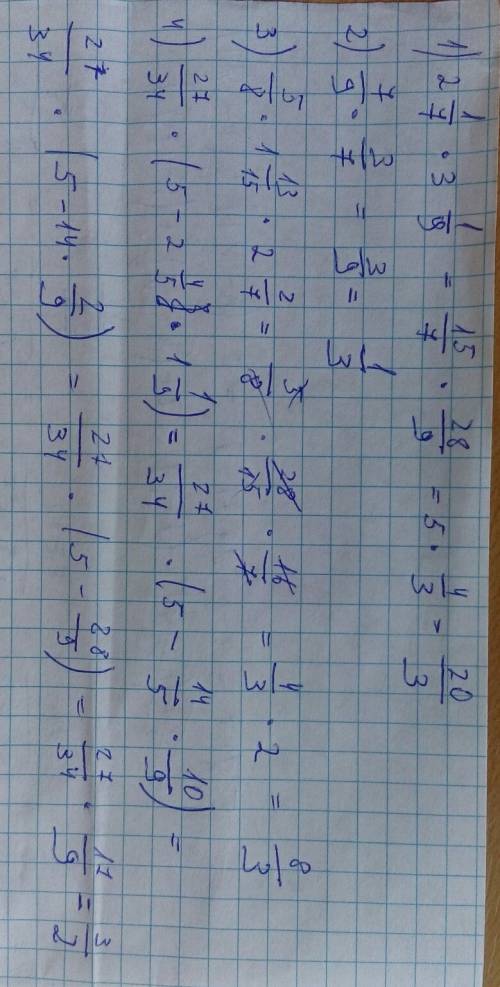 1) 2 1/7 · 3 1/9 = 15/7 · 28/9 = 5 · 4/3 - 20/3
2) 7/9 · 3/7 = 3/9 = 1/3
3) 5/8 · 1 13/15 · 2 2/7 = 5/8 · 28/15 · 16/7 = 4/3 · 2 = 8/3
4) 27/34 · (5 - 2 4/5 · 1 1/9) = 27/34 · (5 - 14/5 · 10/9) =
27/34 · (5 - 14 · 2/9) = 27/34 · (5 - 28/9) = 27/34 · 17/9 = 3/2